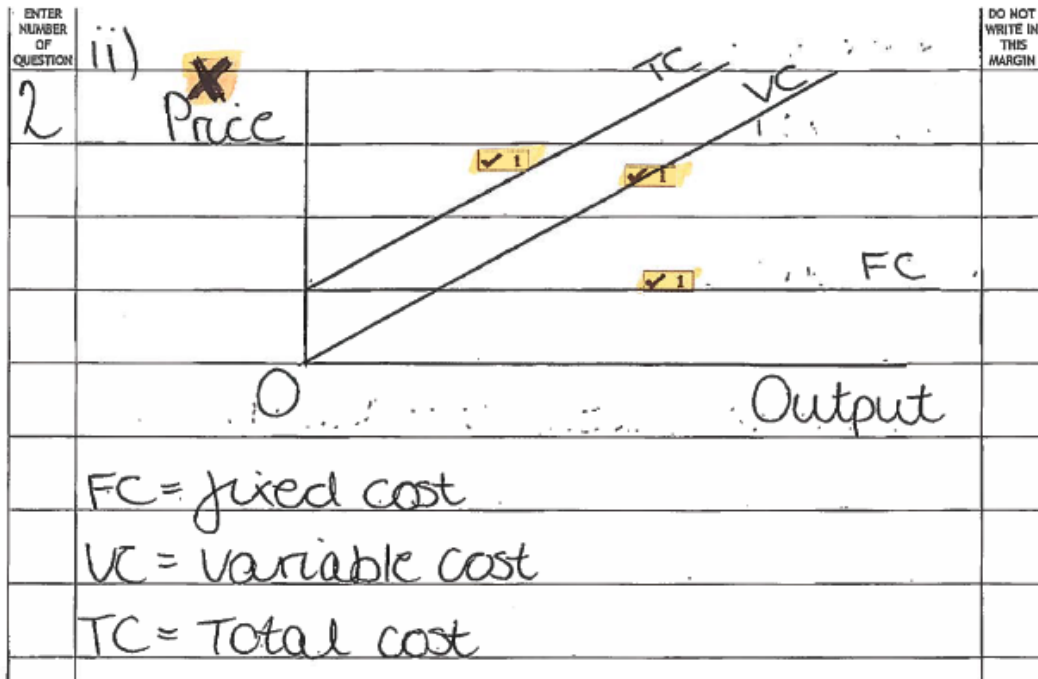 ENTER
NUMBER
OF
QUESTION
DO NOT
WRITE IN
THIS
MARGIN
ii)
2
X
Price
TC
VC
✓ 1
✓ 1
✓ 1
FC
O
Output
FC = fixed cost
VC = variable cost
TC = Total cost